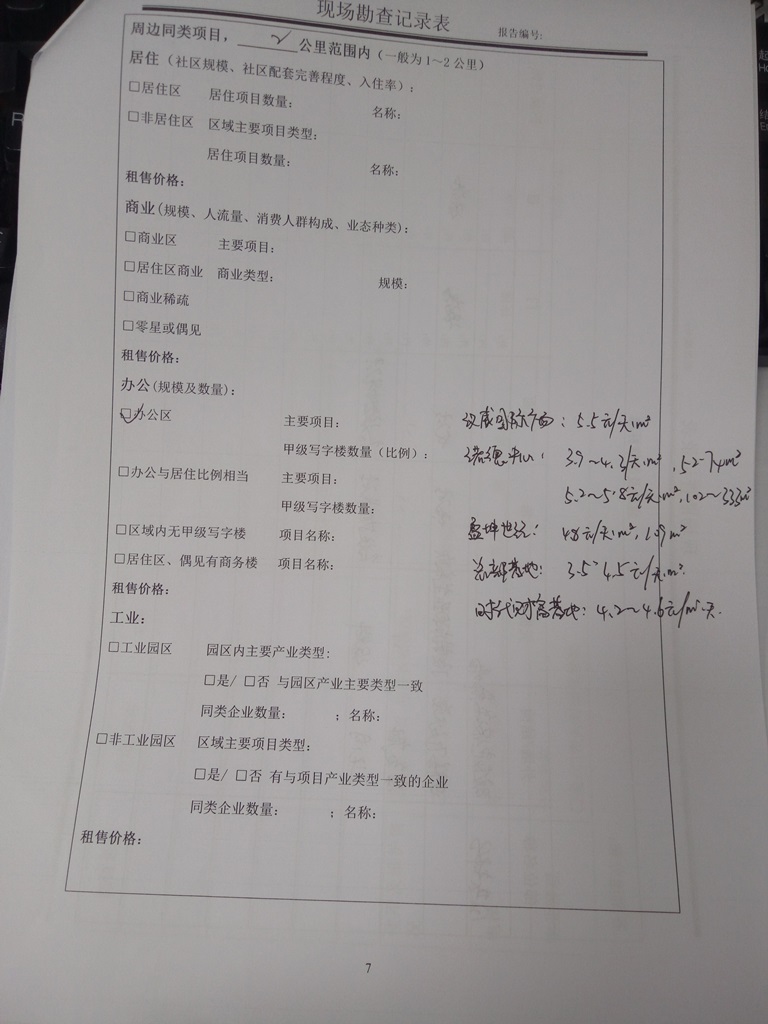 现场勘查记录表
报告编号:
周边同类项目，  ✓  公里范围内（一般为1～2公里）
居住（社区规模、社区配套完善程度、入住率）:
□居住区 居住项目数量: 名称:
□非居住区 区域主要项目类型:
居住项目数量: 名称:
租售价格:
商业(规模、人流量、消费人群构成、业态种类):
□商业区 主要项目:
□居住区商业 商业类型: 规模:
□商业稀疏
□零星或偶见
租售价格:
办公(规模及数量):
☑办公区 主要项目: 汉威国际广场: 5.5元/天·m²
甲级写字楼数量(比例): 诺德中心: 3.9～4.3/天·m², 52-74m²
□办公与居住比例相当 主要项目:
5.2～5.8元/天·m², 102～333m²
甲级写字楼数量:
□区域内无甲级写字楼 项目名称: 盈坤世纪: 4.8元/天·m², 119m²
□居住区、偶见有商务楼 项目名称: 总部基地: 3.5~4.5元/天·m².
租售价格:
时代财富基地: 4.2～4.6元/m²·天.
工业:
□工业园区 园区内主要产业类型:
□是/ □否 与园区产业主要类型一致
同类企业数量: ；名称:
□非工业园区 区域主要项目类型:
□是/ □否 有与项目产业类型一致的企业
同类企业数量: ；名称:
租售价格:
7